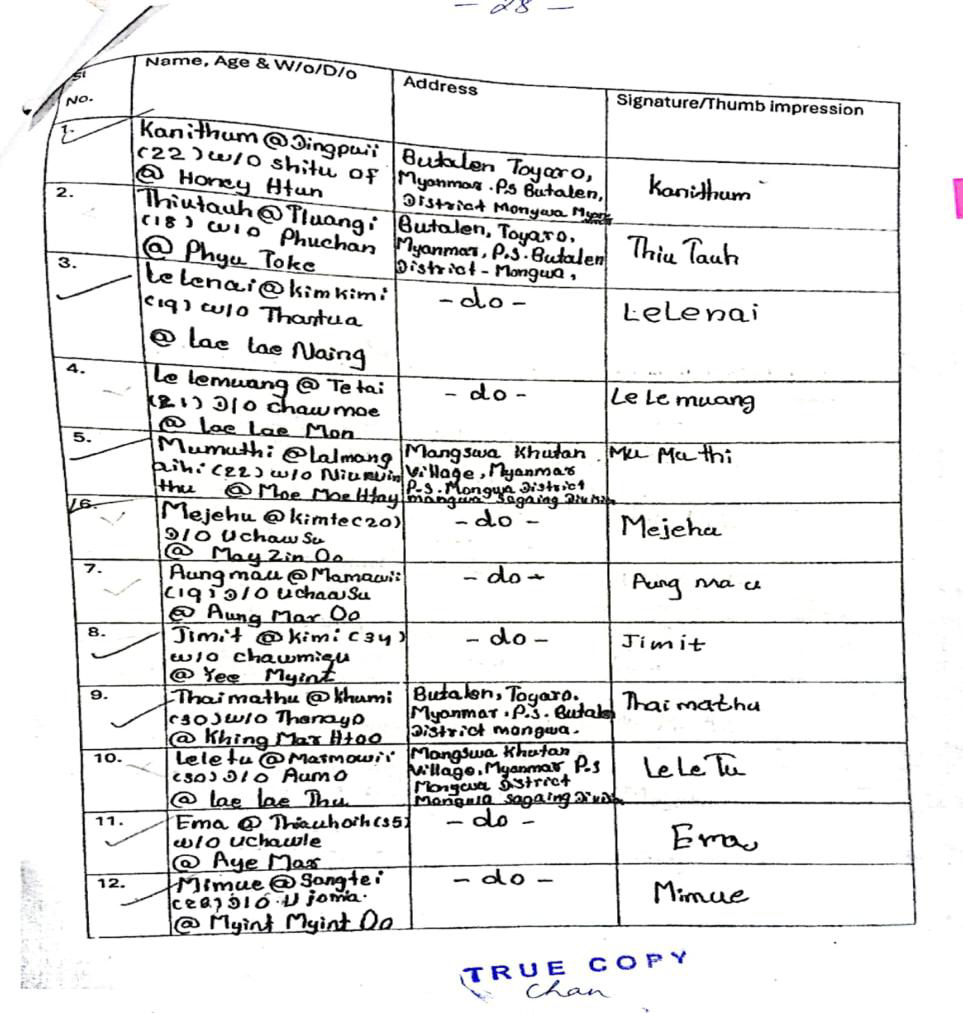 - 28 -
Sl No.
Name, Age & W/o/D/o
Address
Signature/Thumb impression
1.
Kanithum @ Dingpuii
(22) w/o Shitu of
@ Honey Htun
Butalen Toyaro,
Myanmar. P.S Butalen,
District Mongwa
Kanithum
2.
Thiutauh @ Tluangi
(18) w/o Phuchan
@ Phyu Toke
Butalen, Toyaro,
Myanmar, P.S. Butalen
District - Mongwa,
Thiu Tauh
3.
Le Lenai @ kimkimi
(19) w/o Thantua
@ Lae Lae Naing
- do -
LeLenai
4.
Le lemuang @ Tetai
(21) D/o chawmoe
@ Lae Lae Mon
- do -
Le Le muang
5.
Mumuthi @ Lalmang
aihi (22) w/o
thu @ Moe Moe Htay
Mangswa Khutan
Village, Myanmar
P.S. Mongwa District
Mongwa Sagaing
Mu Mu thi
6.
Mejehu @ kimte (20)
D/o Uchaw Su
@ May Zin Oo
- do -
Mejehu
7.
Aung mau @ Mamawii
(19) D/o Uchaw Su
@ Aung Mar Oo
- do -
Aung ma u
8.
Jimit @ kimi (34)
w/o chawmieu
@ Yee Myint
- do -
Jimit
9.
Thaimathu @ Khumi
(30) w/o Thanayo
@ Khing Mar Htoo
Butalen, Toyaro.
Myanmar. P.S. Butalen
District mongwa.
Thai mathu
10.
Lele tu @ Marmawii
(30) D/o Aumo
@ Lae Lae Thu
Mangswa Khutan
Village, Myanmar P.S
Mongwa District
Mongwa Sagaing
Le Le Tu
11.
Ema @ Thiauhoih (35)
w/o Uchawle
@ Aye Mar
- do -
Ema
12.
Mimue @ Sangtei
(28) D/o U joma.
@ Myint Myint Oo
- do -
Mimue
TRUE COPY
Chan